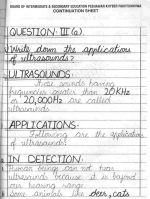 BOARD OF INTERMEDIATE & SECONDARY EDUCATION PESHAWAR KHYBER PAKHTUNKHWA
CONTINUATION SHEET
QUESTION: III (a).
Write down the applications
of ultrasounds?
ULTRASOUNDS:
These sounds having
frequencies greater than 20KHz
or 20,000Hz are called
ultrasounds.
APPLICATIONS:
Following are the applications
of ultrasounds:
IN DETECTION:
Human beings can not hear
ultrasounds because it is beyond
our hearing range.
Some animals like deer, cats